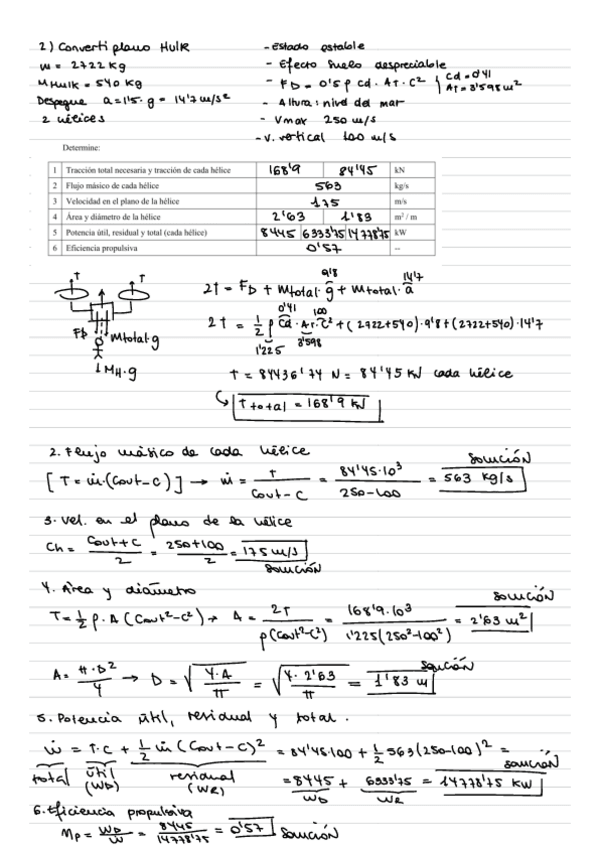 2) Convertiplano Hulk
- Estado estable
m = 2722 Kg
- Efecto suelo despreciable
M Hulk = 540 Kg
- FD = 0'5 ρ Cd · Ar · C² { Cd = 0'41 Ar = 3'598 m²
Despegue a = 1'5 · g = 14'7 m/s²
- Altura: nivel del mar
2 hélices
- Vmax 250 m/s
- V. vertical 100 m/s
Determine:
1 Tracción total necesaria y tracción de cada hélice 168'9 84'45 kN
2 Flujo másico de cada hélice 563 kg/s
3 Velocidad en el plano de la hélice 175 m/s
4 Área y diámetro de la hélice 2'63 1'83 m² / m
5 Potencia útil, residual y total (cada hélice) 8445 6333'75 14778'75 kW
6 Eficiencia propulsiva 0'57 --
T T
FD Mtotal·g
MH·g
9'8 14'7
2T = FD + Mtotal · g + Mtotal · a
0'41 100
2T = 1/2 ρ Cd · Ar · C² + (2722+540) · 9'8 + (2722+540) · 14'7
1'225 3'598
T = 84436'74 N = 84'45 KN cada hélice
↳ Ttotal = 168'9 KN
2. Flujo másico de cada hélice
solución
[T = ṁ·(Cout-C)] → ṁ = T / (Cout-C) = 84'45·10³ / (250-100) = 563 Kg/s
3. Vel. en el plano de la hélice
Ch = (Cout+C)/2 = (250+100)/2 = 175 m/s
solución
4. Área y diámetro
solución
T = 1/2 ρ·A (Cout²-C²) → A = 2T / ρ(Cout²-C²) = 168'9·10³ / 1'225(250²-100²) = 2'63 m²
solución
A = π·D²/4 → D = √(4·A/π) = √(4·2'63/π) = 1'83 m
5. Potencia útil, residual y total.
ẇ = T·C + 1/2 ṁ (Cout-C)² = 84'45·100 + 1/2 563 (250-100)² =
solución
total útil (WD) residual (WR) = 8445 + 6333'75 = 14778'75 KW
WD WR
6. Eficiencia propulsiva
Mp = WD/W = 8445/14778'75 = 0'57 solución